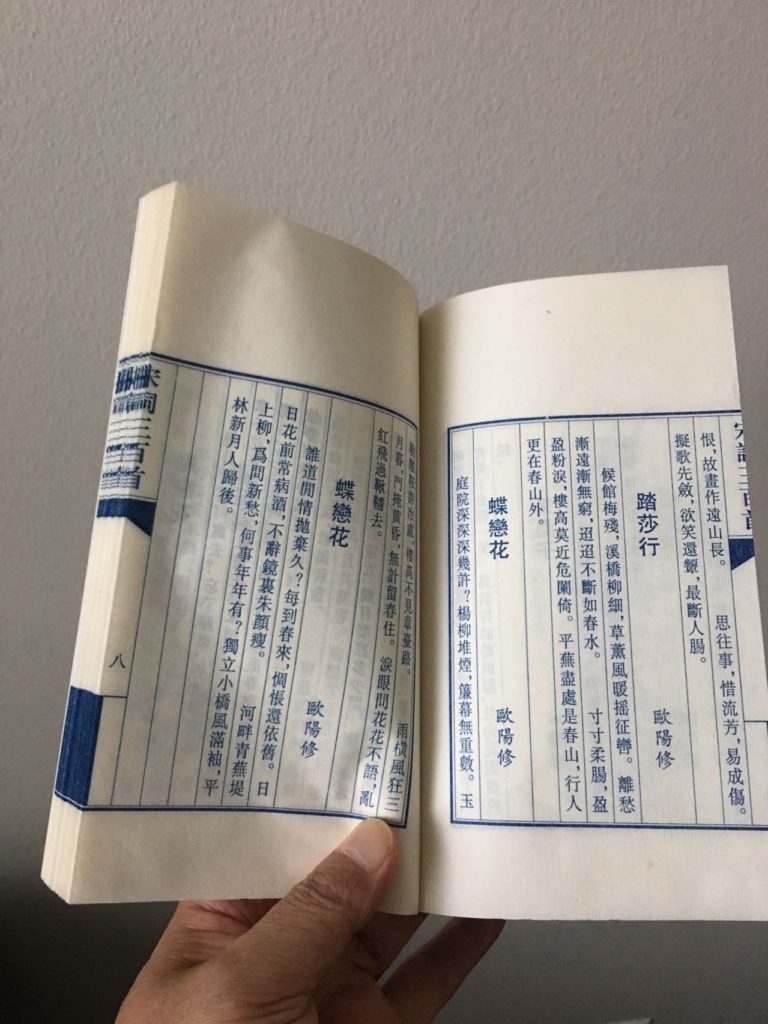 宋詞三百首
恨，故畫作遠山長。　思往事，惜流芳，易成傷。
擬歌先斂，欲笑還顰，最斷人腸。
踏莎行　歐陽修
候館梅殘，溪橋柳細，草薰風暖搖征轡。離愁
漸遠漸無窮，迢迢不斷如春水。　寸寸柔腸，盈
盈粉淚，樓高莫近危闌倚。平蕪盡處是春山，行人
更在春山外。
蝶戀花　歐陽修
庭院深深深幾許？楊柳堆煙，簾幕無重數。玉
勒雕鞍游冶處，樓高不見章臺路。　雨橫風狂三
月暮，門掩黃昏，無計留春住。　淚眼問花花不語，亂
紅飛過鞦韆去。
蝶戀花　歐陽修
誰道閒情拋棄久？每到春來，惆悵還依舊。日
日花前常病酒，不辭鏡裏朱顏瘦。　河畔青蕪堤
上柳，爲問新愁，何事年年有？獨立小橋風滿袖，平
林新月人歸後。
宋詞三百首
八